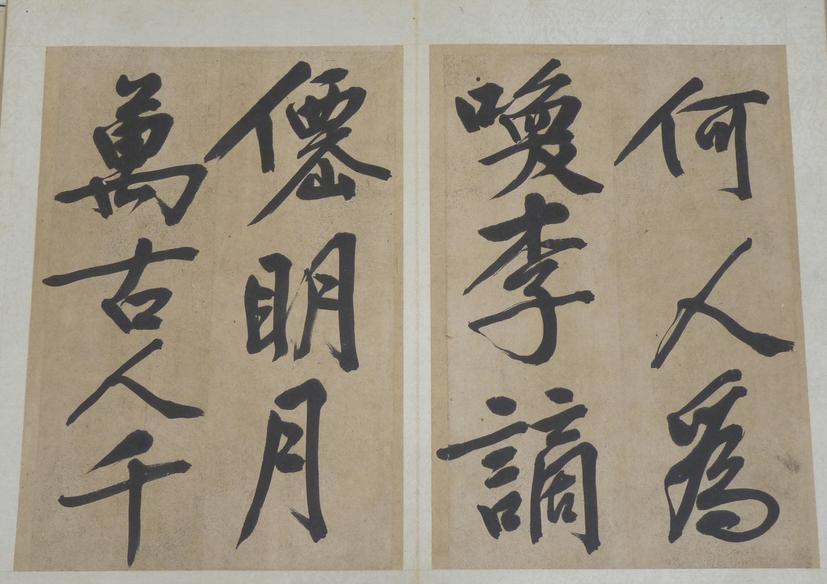 何人為
喚李謫
僊明月
萬古人千